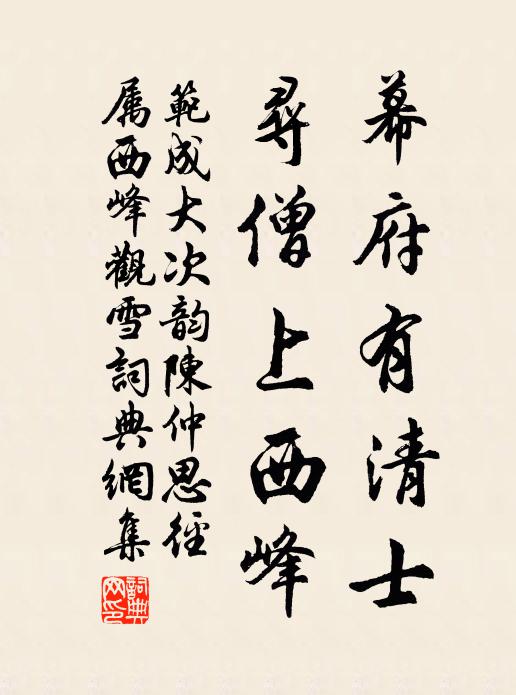 幕府有清士
尋僧上西峰
範成大次韵陳仲思徑
属西峰觀雪詞典網集
詞典
网印